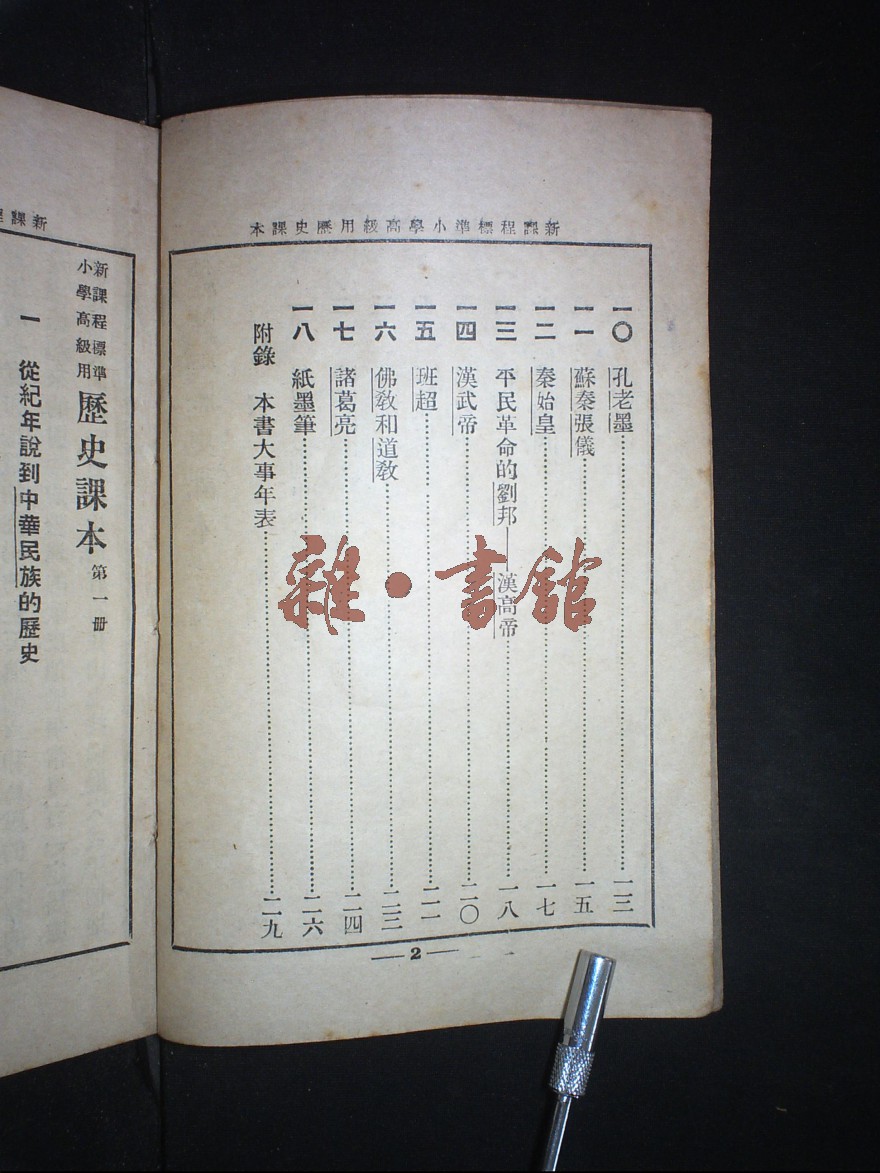 新課程標準小學高級用歷史課本
一〇 孔老墨……一三
一一 蘇秦張儀……一五
一二 秦始皇……一七
一三 平民革命的劉邦——漢高帝……一八
一四 漢武帝……二〇
一五 班超……二一
一六 佛教和道教……二三
一七 諸葛亮……二四
一八 紙墨筆……二六
附錄 本書大事年表……二九
—2—
雜·書館
新課程
新課程標準
小學高級用
歷史課本 第一冊
一 從紀年說到中華民族的歷史